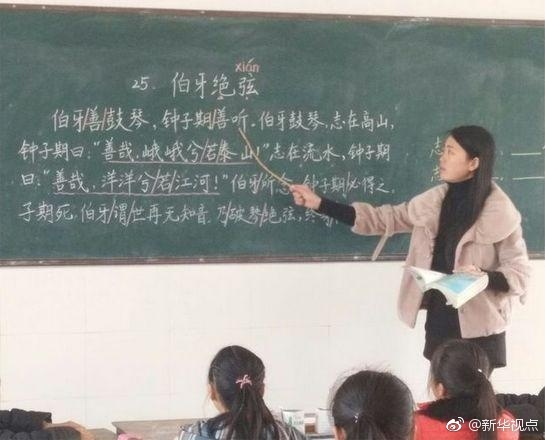 xián
25. 伯牙绝弦
伯牙/善/鼓琴, 钟子期/善听. 伯牙鼓琴, 志在高山,
钟子期曰:“善哉, 峨峨兮/若泰山!”志在流水, 钟子期
曰:“善哉, 洋洋兮/若/江河!”伯牙所念, 钟子期必得之.
子期死, 伯牙/谓/世再无知音. 乃/破琴/绝弦, 终
志
志
@新华视点